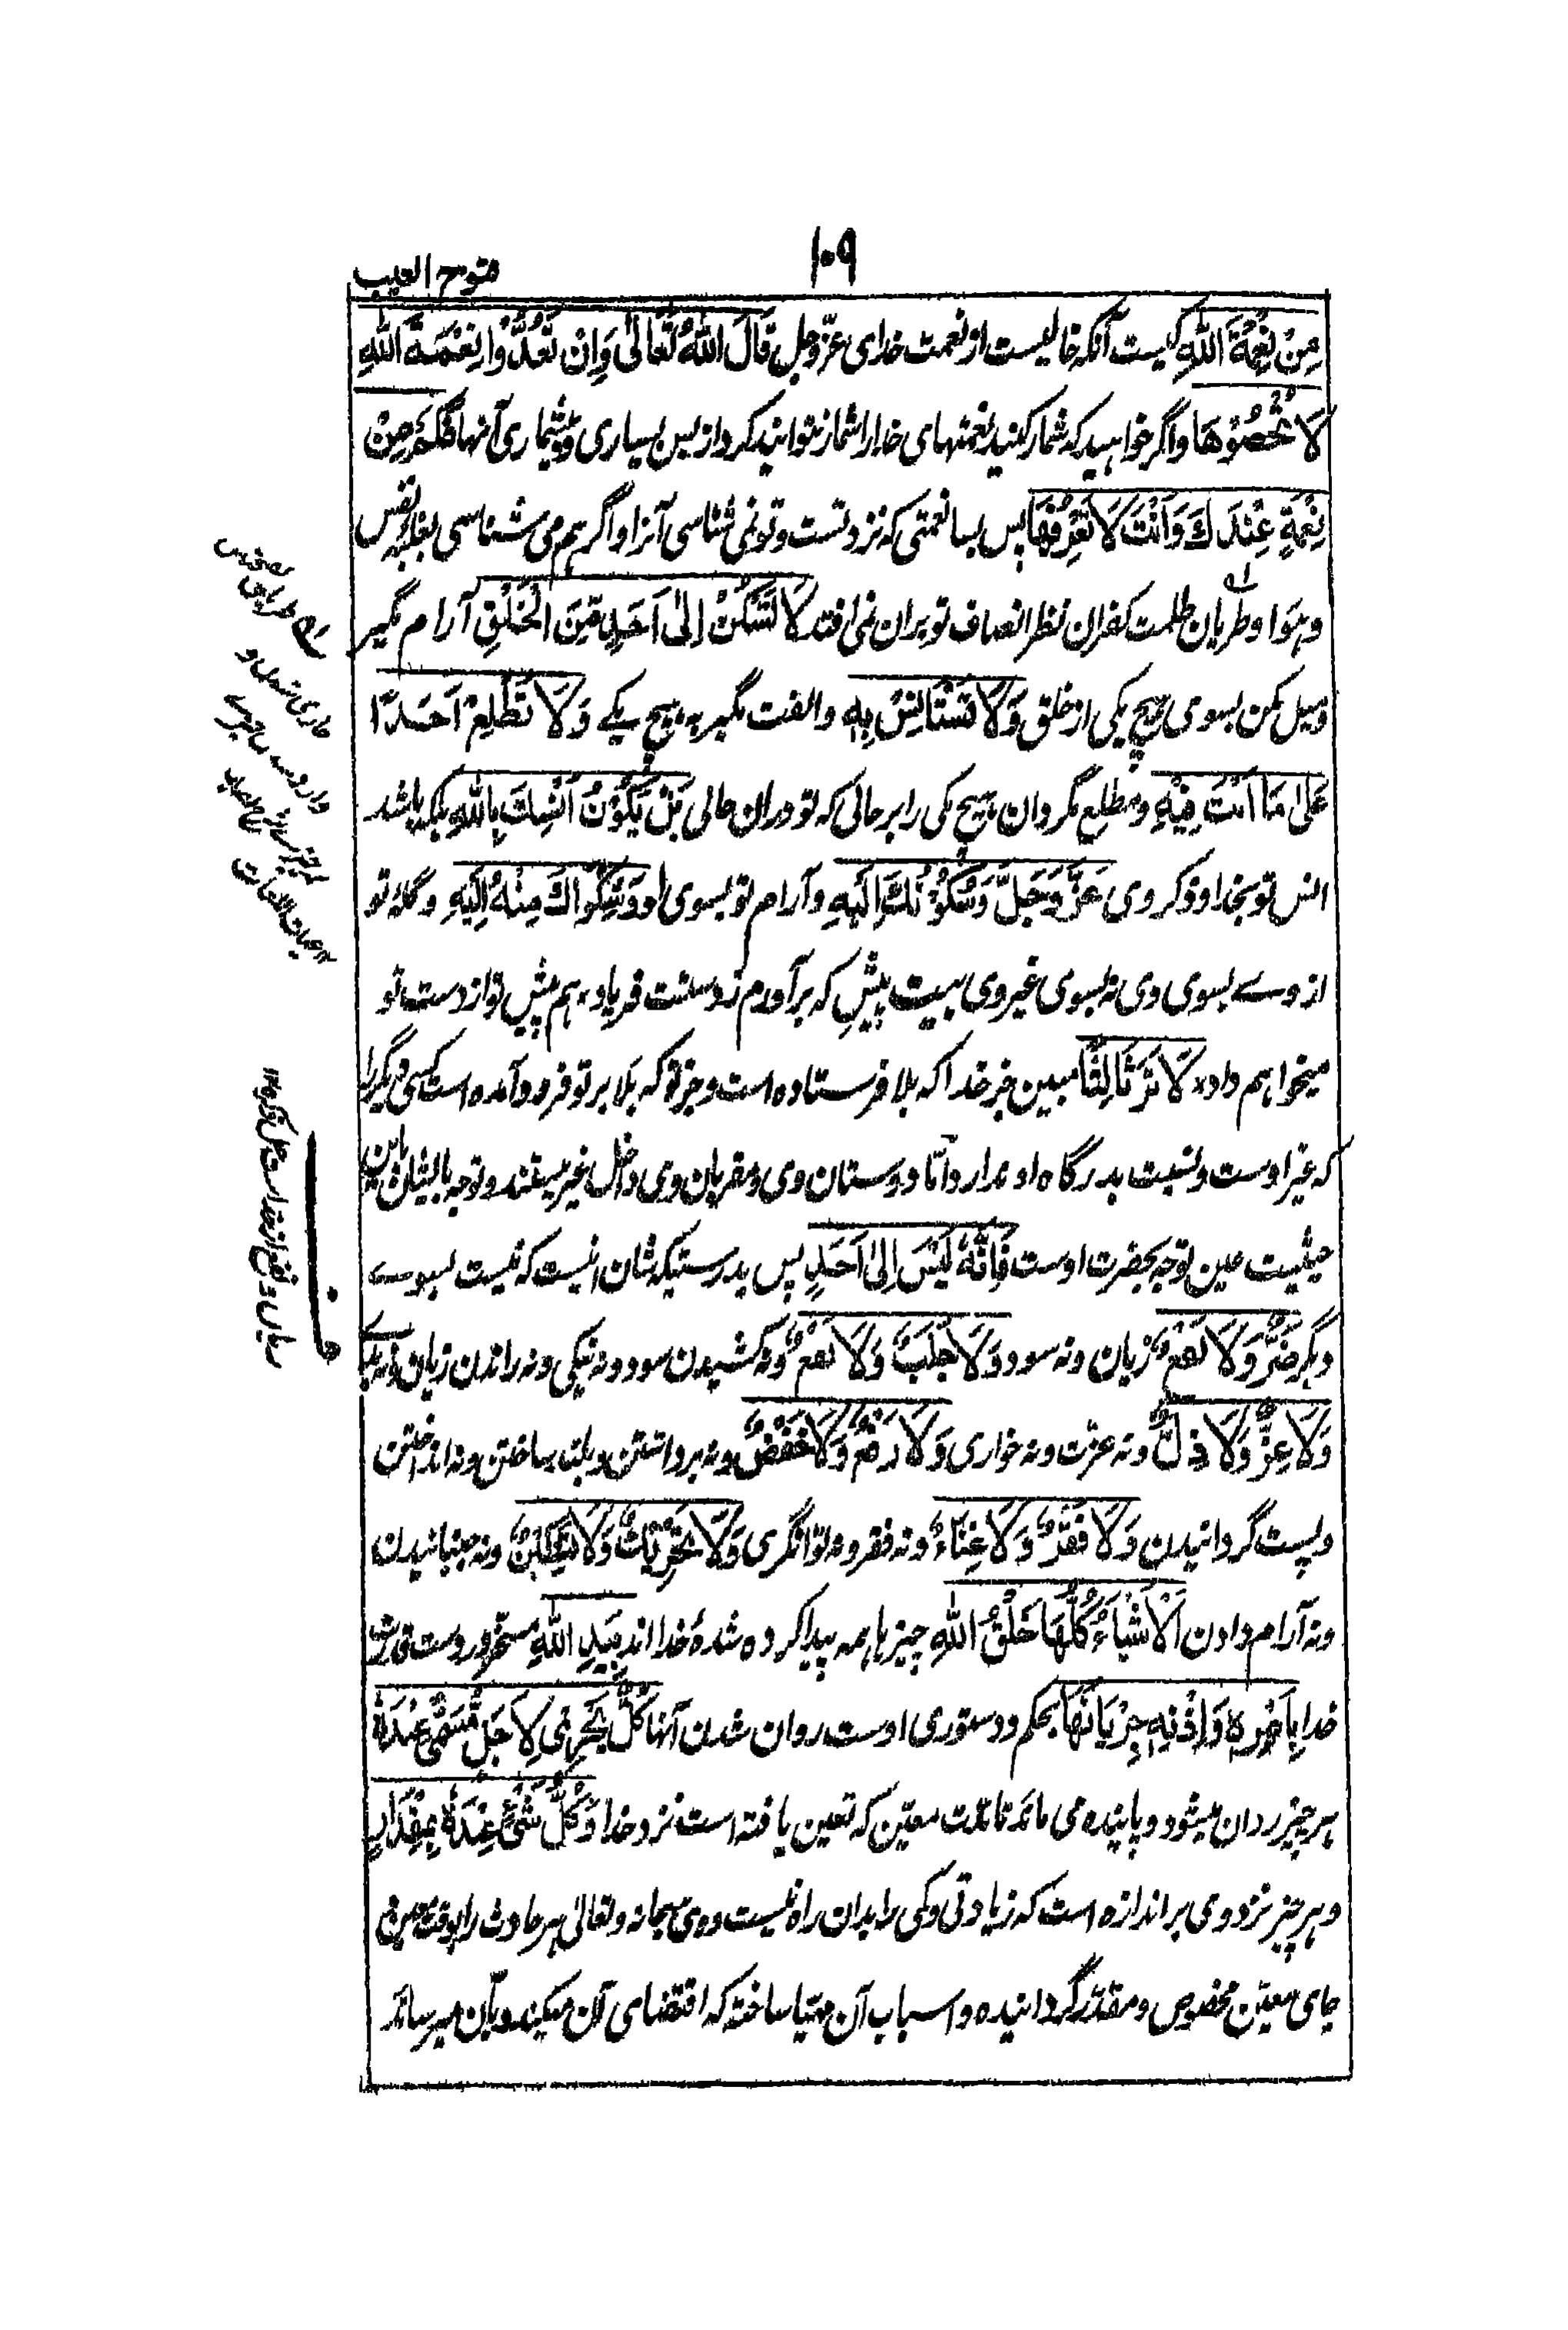 ۱۰۹
فتوح الغیب
مِنْ نِعْمَةِ اللّٰهِ کیست آنکه خالیست از نعمت خدای عزّوجل قَالَ اللّٰهُ تَعَالٰی وَاِنْ تَعُدُّوْا نِعْمَةَ اللّٰهِ
لَا تُحْصُوْهَا واگر خواهید که شمار کنید نعمتهای خدا را شمار نتوانید کرد از بس بسیاری و بیشماری آنها فَكَمْ مِنْ
نِعْمَةٍ عِنْدَكَ وَاَنْتَ لَا تَعْرِفُهَا پس بسا نعمتی که نزد تست و تو نمی شناسی آنرا و اگر هم می شناسی بغلبه نفس
و هوا و طریان ظلمت کفران نظر انصاف تو بران نمی افتد لَا تَسْكُنْ اِلٰی اَحَدٍ مِّنَ الْخَلْقِ آرام مگیر
و میل مکن بسوی هیچ یکی از خلق وَلَا تَسْتَانِسْ بِهٖ و الفت مگیر به هیچ یکے وَلَا تُطْلِعْ اَحَدًا
عَلٰی مَا اَنْتَ فِیْهِ و مطلع مگردان هیچ یکی را بر حالی که تو دران حالی بَلْ یَكُوْنُ اُنْسُكَ بِاللّٰهِ بلکه باشد
انس تو بخدا و ذکر وی عَزَّ وَجَلَّ وَسُكُوْنُكَ اِلَیْهِ و آرام تو بسوی او وَشَكْوَاكَ مِنْهُ اِلَیْهِ و گلۀ تو
از وے بسوی وی نه بسوی غیر وی بیت پیش که برآورم ز دستت فریاد ٭ هم پیش تو از دست تو
میخواهم داد ٭ لَا تَرَ ثَالِثًا مبین جز خدا که بلا فرستاده است و جز تو که بلا بر تو فرود آمده است کسی دیگر را
که غیر اوست و نسبت بدرگاه او ندارد و امّا دوستان وی و مقربان وی داخل غیر نیستند و توجه بایشان باین
حیثیت عین توجه بحضرت اوست فَاِنَّهٗ لَیْسَ اِلٰی اَحَدٍ پس بدرستیکه شان اینست که نیست بسوے
دیگر ضَرٌّ وَلَا نَفْعٌ زیان و نه سود وَلَا جَلْبٌ وَلَا دَفْعٌ و نه کشیدن سود و نه نیکی و نه راندن زیان و نه بدی
وَلَا عِزٌّ وَلَا ذُلٌّ و نه عزت و نه خواری وَلَا رَفْعٌ وَلَا خَفْضٌ و نه برداشتن و بلند ساختن و نه انداختن
و پست گردانیدن وَلَا فَقْرٌ وَلَا غِنَاءٌ و نه فقر و نه توانگری وَلَا تَحْرِیْكٌ وَلَا تَسْكِیْنٌ و نه جنبانیدن
و نه آرام دادن اَلْاَشْیَاءُ كُلُّهَا خَلْقُ اللّٰهِ چیزها همه پیدا کرده شدۀ خدا اند بِیَدِ اللّٰهِ مسخر در دست قدرت
خدا بِاَمْرِهٖ وَاِذْنِهٖ جِرْیَانُهَا بحکم و دستوری اوست روان شدن آنها كُلٌّ یَجْرِیْ لِاَجَلٍ مُّسَمًّی عِنْدَهٗ
هر چیز روان میشود و پاینده می ماند تا مدّت معیّن که تعین یافته است نزد خدا وَكُلُّ شَیْءٍ عِنْدَهٗ بِمِقْدَارٍ
و هر چیز نزد وی بر اندازه است که زیادتی و کمی را بدان راه نیست و وی سبحانه و تعالی هر حادث را بوقت معین و
جای معیّن مخصوص و مقدّر گردانیده و اسباب آن مهیّا ساخته که اقتضای آن میکند و بآن میرساند